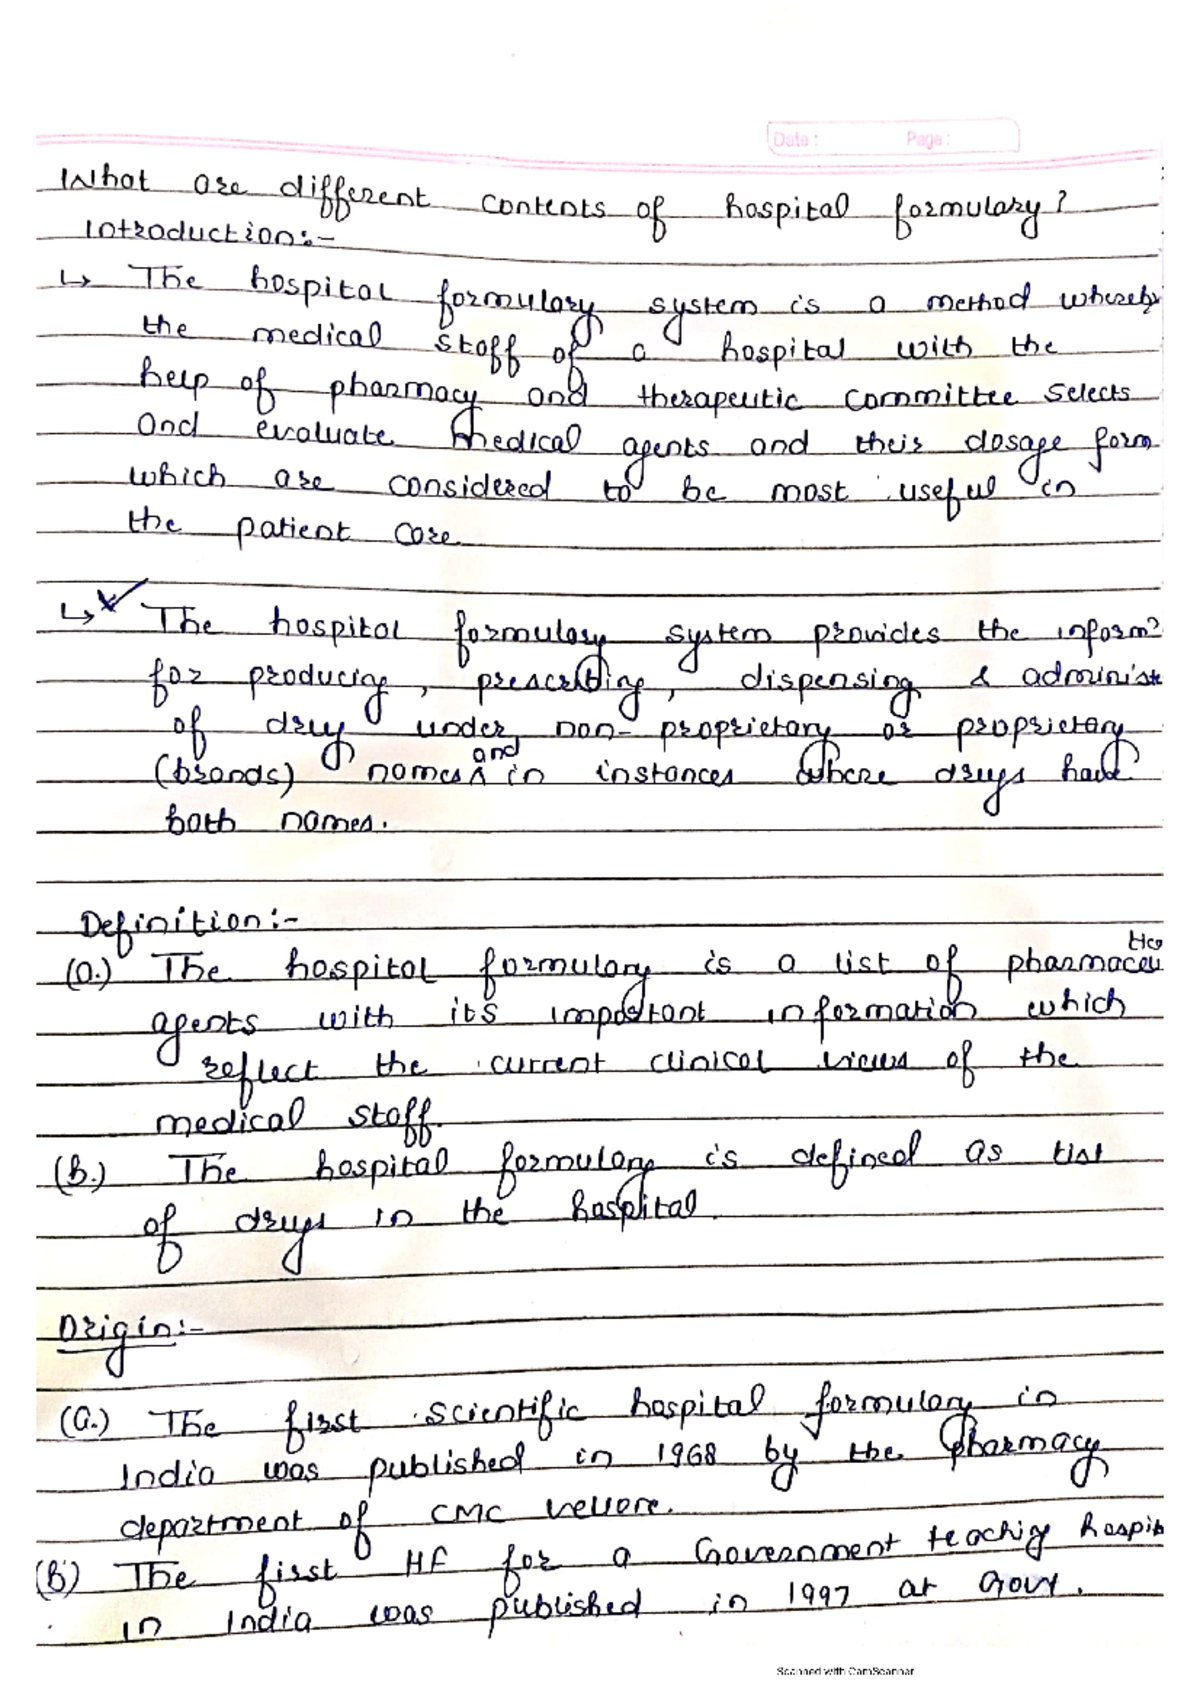 Date :    Page :
What are different contents of hospital formulary?
Introduction:-
↳ The hospital formulary system is a method whereby
the medical staff of a hospital with the
help of pharmacy and therapeutic committee selects
and evaluate medical agents and their dosage form
which are considered to be most useful in
the patient care
↳ The hospital formulary system provides the inform?
for producing, prescribing, dispensing & administ
of drug under, non-proprietary or proprietary
(brands) names and in instances where drugs have
both names.
Definition:-
(a.) The hospital formulary is a list of pharmaceutica
agents with its important information which
reflect the current clinical views of the
medical staff.
(b.) The hospital formulary is defined as list
of drugs in the hospital.
Origin:-
(a.) The first scientific hospital formulary in
India was published in 1968 by the pharmacy
department of CMC vellore.
(B) The first HF for a Government teaching hospit
in India was published in 1997 at Govt.
Scanned with CamScanner